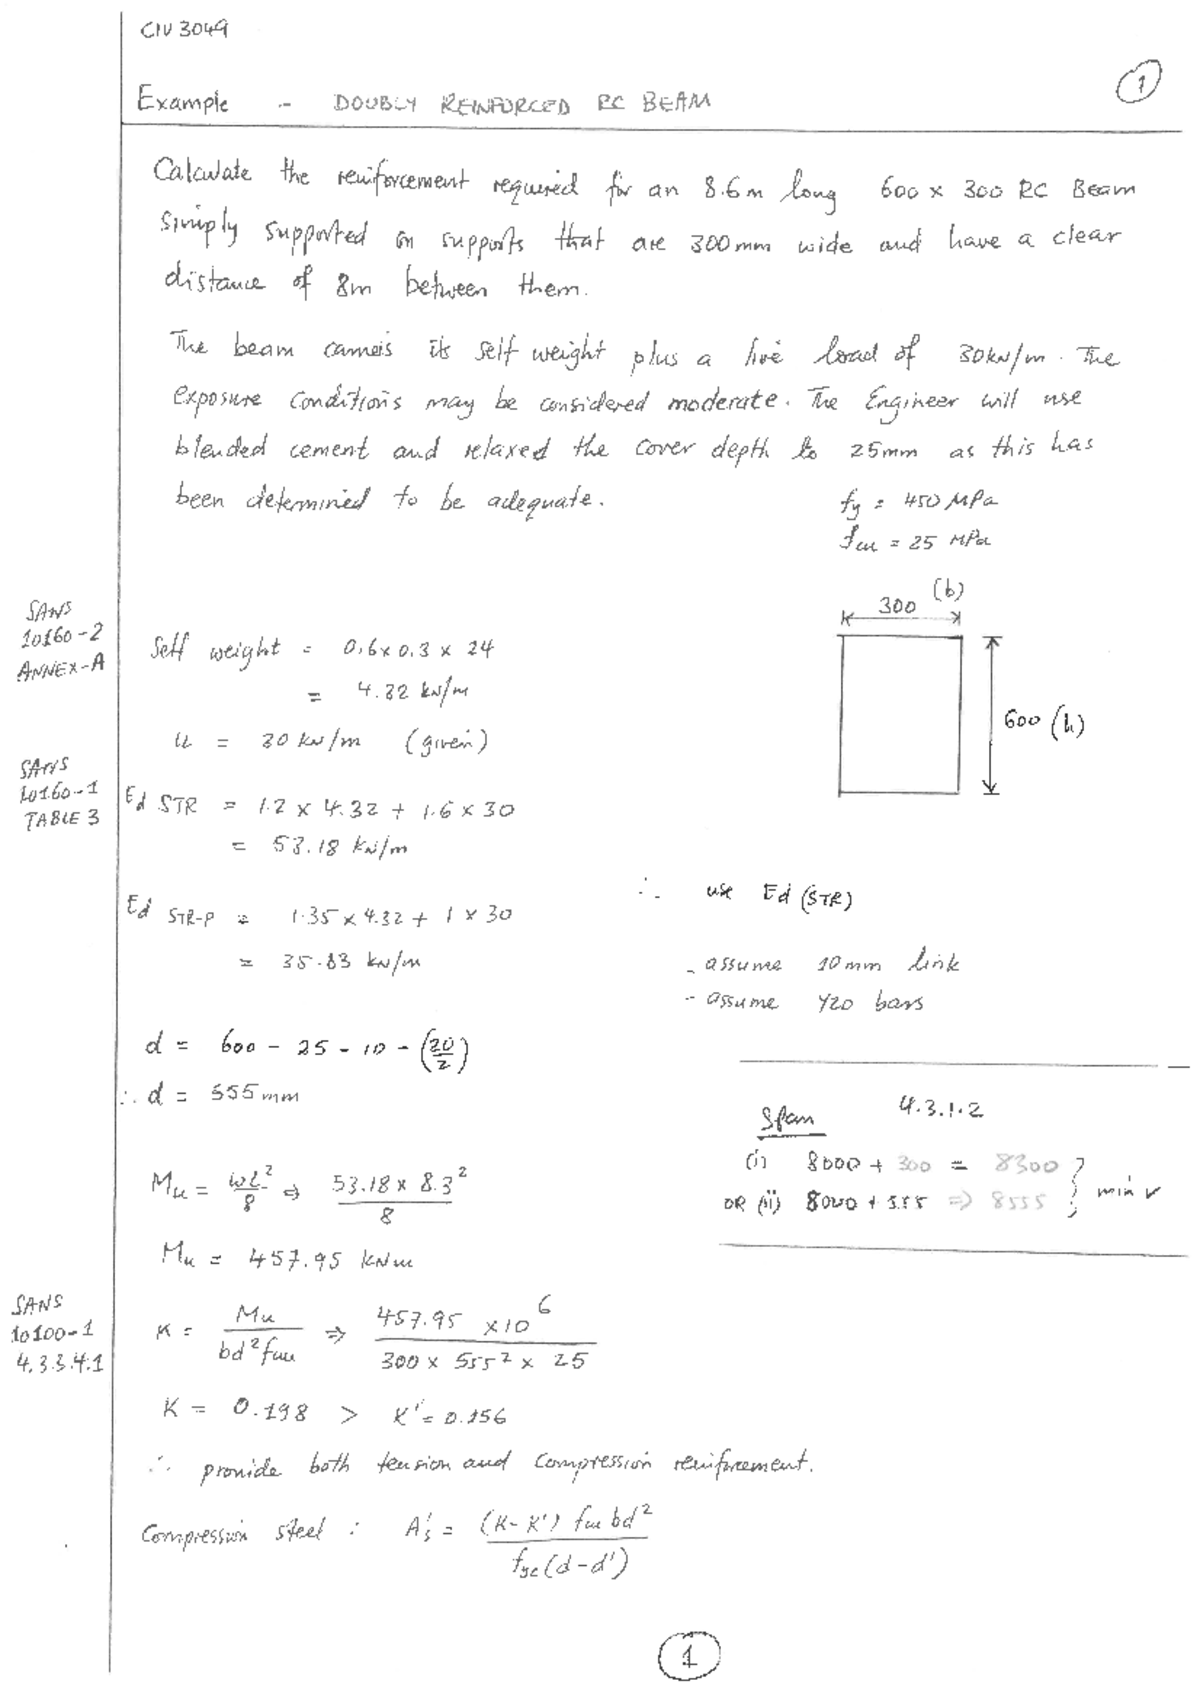 CIV 3049
1
Example :- DOUBLY REINFORCED RC BEAM
Calculate the reinforcement required for an 8.6m long 600 x 300 RC Beam
Simply supported on supports that are 300mm wide and have a clear
distance of 8m between them.
The beam carries its self weight plus a live load of 30kN/m. The
exposure conditions may be considered moderate. The Engineer will use
blended cement and relaxed the cover depth to 25mm as this has
been determined to be adequate.
fy = 450 MPa
fcu = 25 MPa
300 (b)
600 (h)
SANS
10160-2
ANNEX-A
Self weight = 0.6 x 0.3 x 24
= 4.32 kN/m
LL = 30 kN/m (given)
SANS
10160-1
TABLE 3
Ed STR = 1.2 x 4.32 + 1.6 x 30
= 53.18 kN/m
Ed STR-P = 1.35 x 4.32 + 1 x 30
= 35.83 kN/m
∴ use Ed (STR)
- assume 10mm link
- assume Y20 bars
d = 600 - 25 - 10 - (20/2)
∴ d = 555mm
Span 4.3.1.2
(i) 8000 + 300 = 8300
OR (ii) 8000 + 555 => 8555
} min ✓
Mu = wL²/8 => 53.18 x 8.3²/8
Mu = 457.95 kNm
SANS
10100-1
4.3.3.4.1
K = Mu/bd²fcu => 457.95 x10⁶/300 x 555² x 25
K = 0.198 > K' = 0.156
∴ provide both tension and compression reinforcement.
Compression steel : A's = (K-K') fcu bd²/fyc (d-d')
1